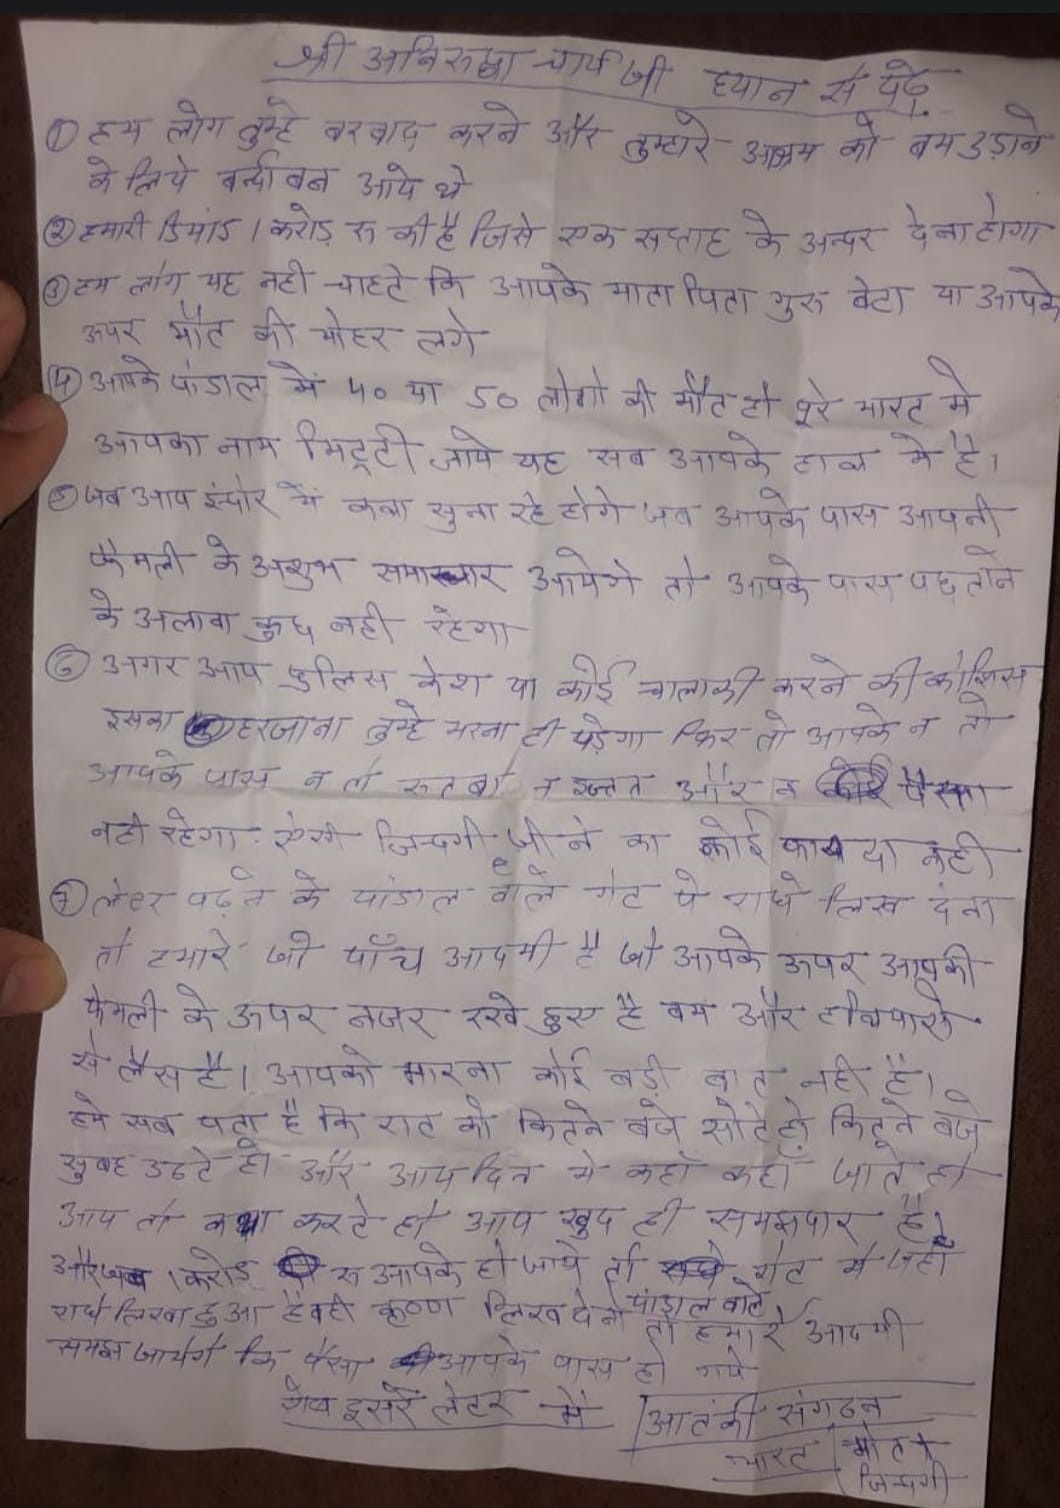 श्री अनिरुद्धा चार्य जी ध्यान से पढ़े.
① हम लोग तुम्हे बरबाद करने और तुम्हारे आश्रम को बम उड़ाने
के लिये बर्न्दाबन आये थे
② हमारी डिमांड 1 करोड़ रु की है जिसे एक सप्ताह के अन्दर देना होगा
③ हम लोग यह नही चाहते कि आपके माता पिता गुरु बेटा या आपके
ऊपर मौत की मोहर लगे
④ आपके पांडाल में 40 या 50 लोगो की मौत हो पूरे भारत मे
आपका नाम मिट्टी जाये यह सब आपके हाथ मे है।
⑤ जब आप इंदोर में कथा सुना रहे होगे जब आपके पास आपनी
फैमली के अशुभ समाचार आयेगे तो आपके पास पछताने
के अलावा कुछ नही रहेगा
⑥ अगर आप पुलिस केश या कोई चालाकी करने की कोशिस
इसका हरजाना तुम्हे भरना ही पड़ेगा फिर तो आपके न तो
आपके पास न तो रुतबा न इज्जत और न पैसा
नही रहेगा. ऐसी जिन्दगी जीने का कोई फायदा नही
⑦ लेटर पढ़ने के पांडाल वाले गेट पे राधे लिख देना
तो हमारे जो पाँच आदमी है जो आपके ऊपर आपकी
फैमली के ऊपर नजर रखे हुए है बम और हथियारो
से लैस है। आपको मारना कोई बड़ी बात नही है।
हमे सब पता है कि रात को कितने बजे सोते हो कितने बजे
सुबह उठते हो और आप दिन मे कहाँ कहाँ जाते हो
आप तो कथा करते हो आप खुद ही समझदार है।
और जब 1 करोड़ रु आपके हो जाये तो गेट मे जहाँ
राधे लिखा हुआ है वही कृष्ण लिख देना पांडाल वाले तो हमारे आदमी
समझ जायेगे कि पैसा आपके पास हो गये
शेष दूसरे लेटर में
आतंकी संगठन
भारत
मौत X
जिन्दगी